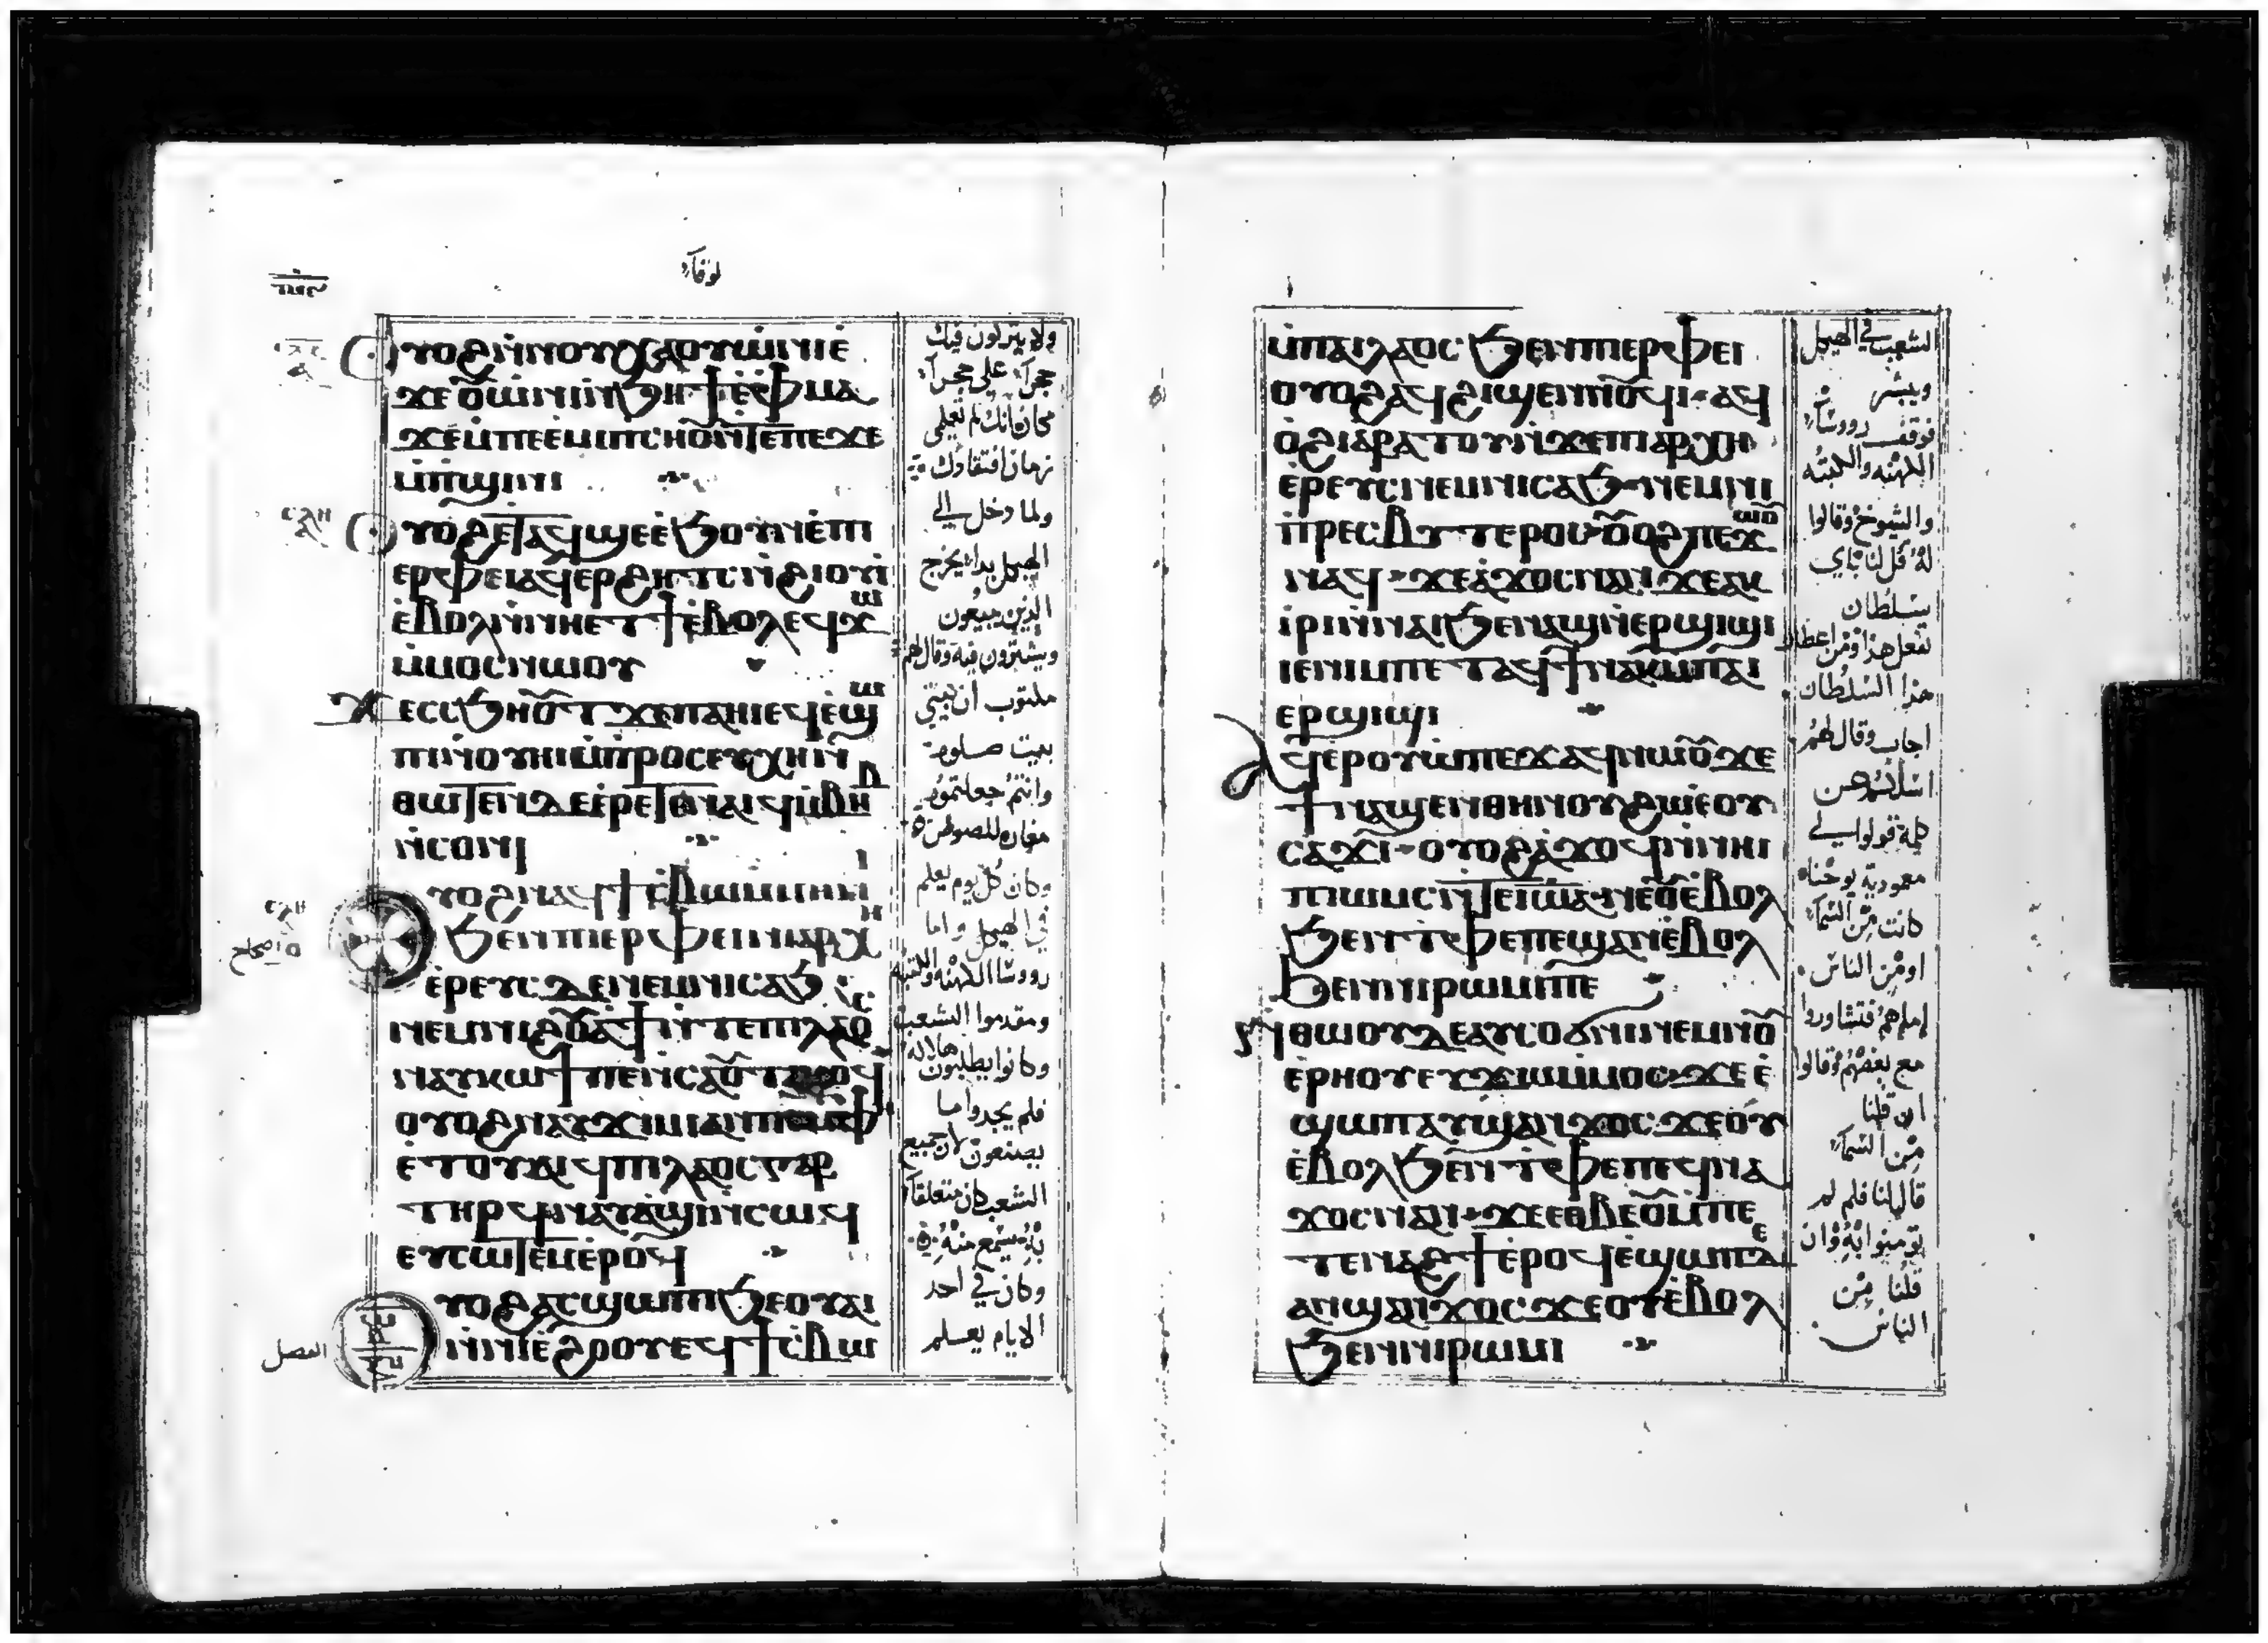 لوقا
ⲟⲩⲟϩ ⲛ̀ⲛⲟⲩⲭⲁ ⲟⲩⲱ̀ⲛⲓ ⲉ̀
ϫⲉⲛ ⲟⲩⲱ̀ⲛⲓ ⲛ̀ϧⲏϯ ⲉ̀ⲫⲙⲁ
ϫⲉ ⲙ̀ⲡⲉⲉⲙⲓ ⲡⲥⲏⲟⲩ ⲛ̀ⲧⲉ ⲡⲉϫⲉ
ⲙ̀ⲡϣⲓⲛⲓ
ⲟⲩⲟϩ ⲉⲧⲁϥϣⲉ ⲉ̀ϧⲟⲩⲛ ⲉ̀ⲡⲓ
ⲉⲣⲫⲉⲓ ⲁϥⲉⲣϩⲏⲧⲥ ⲛ̀ϩⲓⲟⲩⲓ̀
ⲉ̀ⲃⲟⲗ ⲛ̀ⲛⲏ ⲉⲧϯ ⲉ̀ⲃⲟⲗ ⲉϥϫⲱ
ⲙ̀ⲙⲟⲥ ⲛⲱⲟⲩ
ϫⲉ ⲥⲥϧⲏⲟⲩⲧ ϫⲉ ⲡⲁⲏⲓ ⲉϥⲉ̀ϣⲱ
ⲡⲓ ⲛ̀ⲟⲩⲏⲓ ⲙ̀ⲡⲣⲟⲥⲉⲩⲭⲏ ⲛ̀
ⲑⲱⲧⲉⲛ ⲇⲉ ⲉ̀ⲣⲉⲧⲉⲛⲁⲓϥ ⲙ̀ⲃⲏⲃ
ⲛ̀ⲥⲟⲛⲓ
ⲟⲩⲟϩ ⲛⲁϥϯⲥⲃⲱ ⲙ̀ⲙⲏⲛⲓ
ϧⲉⲛ ⲡⲓⲉⲣⲫⲉⲓ ⲛⲓⲁⲣⲭⲏ
ⲉ̀ⲣⲉⲩⲥ ⲇⲉ ⲛⲉⲙ ⲛⲓⲥⲁϧ
ⲛⲉⲙ ⲛⲓϩⲟⲩⲁϯ ⲛ̀ⲧⲉ ⲡⲓⲗⲁⲟⲥ
ⲛⲁⲩⲕⲱϯ ⲡⲉ ⲛ̀ⲥⲁ
ⲟⲩⲟϩ ⲛⲁⲩϫⲓⲙⲓ ⲁⲛ ⲡⲉ
ⲉ̀ⲧⲟⲩⲛⲁⲓϥ ⲡⲓⲗⲁⲟⲥ ⲅⲁⲣ
ⲧⲏⲣϥ ⲛⲁⲩⲁϣⲓ ⲛ̀ⲥⲱϥ
ⲉⲩⲥⲱⲧⲉⲙ ⲉ̀ⲣⲟϥ
ⲟⲩⲟϩ ⲁⲥϣⲱⲡⲓ ϧⲉⲛ ⲟⲩⲁⲓ
ⲛ̀ⲛⲓⲉ̀ϩⲟⲟⲩ ⲉϥϯⲥⲃⲱ
اصحاح
الفصل
ولا يتركون فيك
حجرا على حجر
مكان انك لم تعلمي
زمان افتقادك
ولما دخل الي
الهيكل بدا يخرج
الذين يبيعون
ويشترون فيه وقال لهم
مكتوب ان بيتي
بيت صلوه
وانتم جعلتموه
مغاره للصوص
وكان كل يوم يعلم
في الهيكل واما
رووسا الكهنه والكتبه
ومقدموا الشعب
وكانوا يطلبون هلاكه
فلم يجدوا ما
يصنعون لان جميع
الشعب كان متعلقا
به يسمع منه
وكان في احد
الايام يعلم
ⲙ̀ⲡⲁⲓⲗⲁⲟⲥ ϧⲉⲛ ⲡⲓⲉⲣⲫⲉⲓ
ⲟⲩⲟϩ ⲁϥϩⲓϣⲉⲛⲛⲟⲩϥⲓ ⲁⲩ
ⲟ̀ϩⲓ ⲉ̀ⲣⲁⲧⲟⲩ ⲛ̀ϫⲉ ⲛⲓⲁⲣⲭⲏ
ⲉ̀ⲣⲉⲩⲥ ⲛⲉⲙ ⲛⲓⲥⲁϧ ⲛⲉⲙ ⲛⲓ
ⲡ̀ⲣⲉⲥⲃⲩⲧⲉⲣⲟⲥ ⲟⲩⲟϩ ⲡⲉϫⲱⲟⲩ
ⲛⲁϥ ϫⲉ ⲁ̀ϫⲟⲥ ⲛⲁⲛ ϫⲉ ⲁⲕ
ⲓ̀ⲣⲓ ⲛ̀ⲛⲁⲓ ϧⲉⲛ ⲁϣ ⲛ̀ⲉⲣϣⲓϣⲓ
ⲓⲉ ⲛⲓⲙ ⲡⲉ ⲧⲁϥϯ ⲛⲁⲕ ⲙ̀ⲡⲁⲓ
ⲉⲣϣⲓϣⲓ
ⲁϥⲉⲣⲟⲩⲱ̀ ⲡⲉϫⲁϥ ⲛⲱⲟⲩ ϫⲉ
ϯⲛⲁϣⲉⲛ ⲑⲏⲛⲟⲩ ϩⲱ ⲉ̀ⲟⲩ
ⲥⲁϫⲓ ⲟⲩⲟϩ ⲁ̀ϫⲟϥ ⲛ̀ⲛⲏⲓ
ⲡⲓⲱⲙⲥ ⲛ̀ⲧⲉ ⲓⲱⲁ ⲛⲉ ⲟⲩⲉ̀ⲃⲟⲗ
ϧⲉⲛ ⲧⲫⲉ ⲡⲉ ϣⲁⲛ ⲉ̀ⲃⲟⲗ
ϧⲉⲛ ⲛⲓⲣⲱⲙⲓ ⲡⲉ
ⲛ̀ⲑⲱⲟⲩ ⲇⲉ ⲁⲩⲥⲟϭⲛⲓ ⲛⲉⲙ ⲛⲟⲩ
ⲉ̀ⲣⲏⲟⲩ ⲉⲩϫⲱ ⲙ̀ⲙⲟⲥ ϫⲉ ⲉ̀
ϣⲱⲡ ⲁⲩϣⲁⲛϫⲟⲥ ϫⲉ ⲟⲩ
ⲉ̀ⲃⲟⲗ ϧⲉⲛ ⲧⲫⲉ ⲡⲉ ϥⲛⲁ
ϫⲟⲥ ⲛⲁⲛ ϫⲉ ⲉⲑⲃⲉⲟⲩ ⲙ̀ⲡⲉ
ⲧⲉⲛⲛⲁϩϯ ⲉ̀ⲣⲟϥ ⲉ̀ϣⲱⲡ ⲇⲉ
ⲁⲛϣⲁⲛϫⲟⲥ ϫⲉ ⲟⲩⲉ̀ⲃⲟⲗ
ϧⲉⲛ ⲛⲓⲣⲱⲙⲓ
الشعب في الهيكل
ويبشر
فوقف رووسا
الكهنه والكتبه
والشيوخ وقالوا
له قل لنا باي
سلطان
تفعل هذا ومن اعطاك
هذا السلطان
اجاب وقال لهم
اسلكم عن
كلمة قولوا لي
معمودية يوحنا
كانت من السما
او من الناس
اما هم فتشاوروا
مع بعضهم وقالوا
ان قلنا
من السما
قال لنا فلم لم
تومنوا به وان
قلنا من
الناس